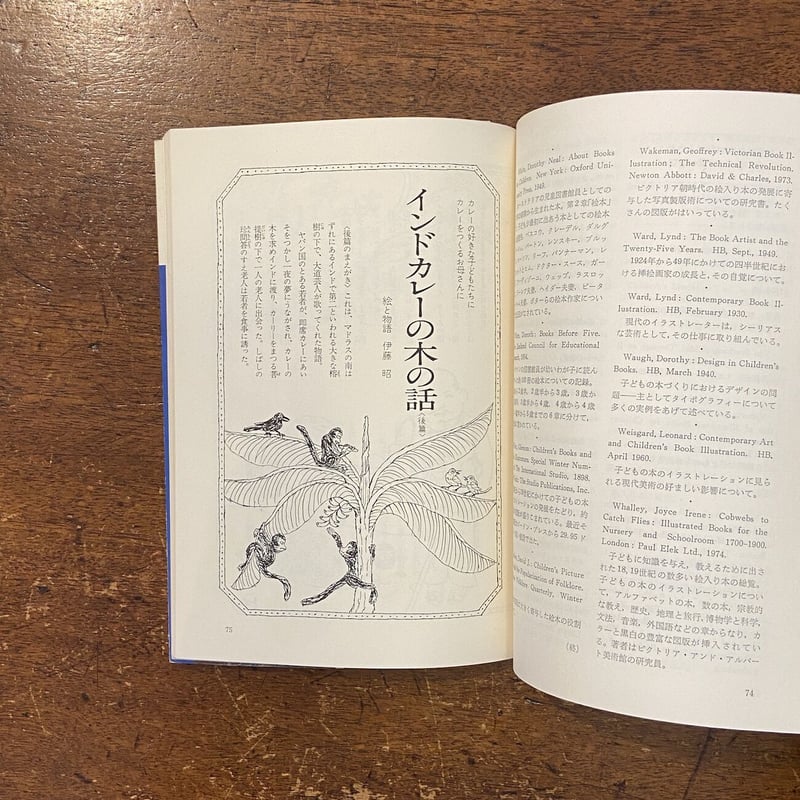 カレーの好きな子どもたちに
カレーをつくるお母さんに
インドカレーの木の話〈後篇〉
絵と物語 伊藤 昭
〈後篇のまえがき〉これは、マドラスの南は
ずれにあるインドで第二といわれる大きな榕
樹の下で、大道芸人が歌ってくれた物語。
ヤパン国のとある若者が、即席カレーにあい
そをつかし一夜の夢にうながされ、カレーの
木を求めインドに渡り、カーリーをまつる菩
提樹の下で一人の老人に出会った。しばしの
問答のすえ老人は若者を食事に誘った。
75
Dorothy Neal: About Books
Children. New York: Oxford Uni-
Press, 1949.
児童図書館員としての
から生まれた本。第2章「絵本」
最初に出あう本としての絵本
ベスコウ, クレーデル, ダルグ
バートン, レンスキー, ブルッ
リーフ, バンナーマン, レ
ドクター・スース, ガー
ウェッブ, ラスロッ
ヘイダー夫妻, ピータ
ポターらの絵本作家につい
Dorothy: Books Before Five.
Council for Educational
図書館員が幼いわが子に読ん
冊の絵本についての記録。
2歳半から3歳, 3歳から
3歳半から4歳, 4歳から4歳
から5歳までの6章に分けて,
いる。
Children's Books and
Special Winter Num-
International Studio, 1898.
The Studio Publications, Inc.
世紀にかけての子どもの本
ーションの発展をたどり, 約
が届けてまれている。最近そ
・プレスから29.95ド
David J.: Children's Picture
Popularization of Folklore.
Folklore Quarterly, Winter
寄与した絵本の役割
(65)
Wakeman, Geoffrey: Victorian Book Il-
lustration; The Technical Revolution.
Newton Abbott: David & Charles, 1973.
ビクトリア朝時代の絵入り本の発展に寄
与した写真製版術についての研究書。たく
さんの図版がはいっている。
Ward, Lynd: The Book Artist and the
Twenty-Five Years. HB, Sept., 1949.
1924年から49年にかけての四半世紀にお
ける挿絵画家の成長と, その自覚について。
Ward, Lynd: Contemporary Book Il-
lustration. HB, February 1930.
現代のイラストレーターは, シーリアス
な芸術として, その仕事に取り組んでいる。
Waugh, Dorothy: Design in Children's
Books. HB, March 1940.
子どもの本づくりにおけるデザインの問
題――主としてタイポグラフィーについて
多くの実例をあげて述べている。
Weisgard, Leonard: Contemporary Art
and Children's Book Illustration. HB,
April 1960.
子どもの本のイラストレーションに見ら
れる現代美術の好ましい影響について。
Whalley, Joyce Irene: Cobwebs to
Catch Flies: Illustrated Books for the
Nursery and Schoolroom 1700-1900.
London: Paul Elek Ltd., 1974.
子どもに知識を与え, 教えるために出さ
れた18, 19世紀の数多い絵入り本の総覧。
子どもの本のイラストレーションについ
て, アルファベットの本, 数の本, 宗教的
な教え, 歴史, 地理と旅行, 博物学と科学,
文法, 音楽, 外国語などの章からなり, カ
ラーと黒白の豊富な図版が挿入されてい
る。著者はビクトリア・アンド・アルバー
ト美術館の研究員。
74